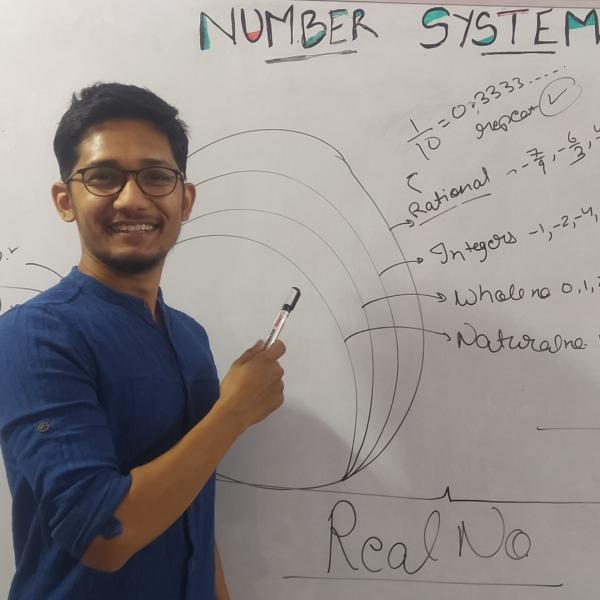 NUMBER SYSTEM
1/10 = 0.3333.....
repeat ✓
Rational - -7/9, -6/3,
Integers -1, -2, -4,
Whole no 0, 1, 2
Natural no.
Real No